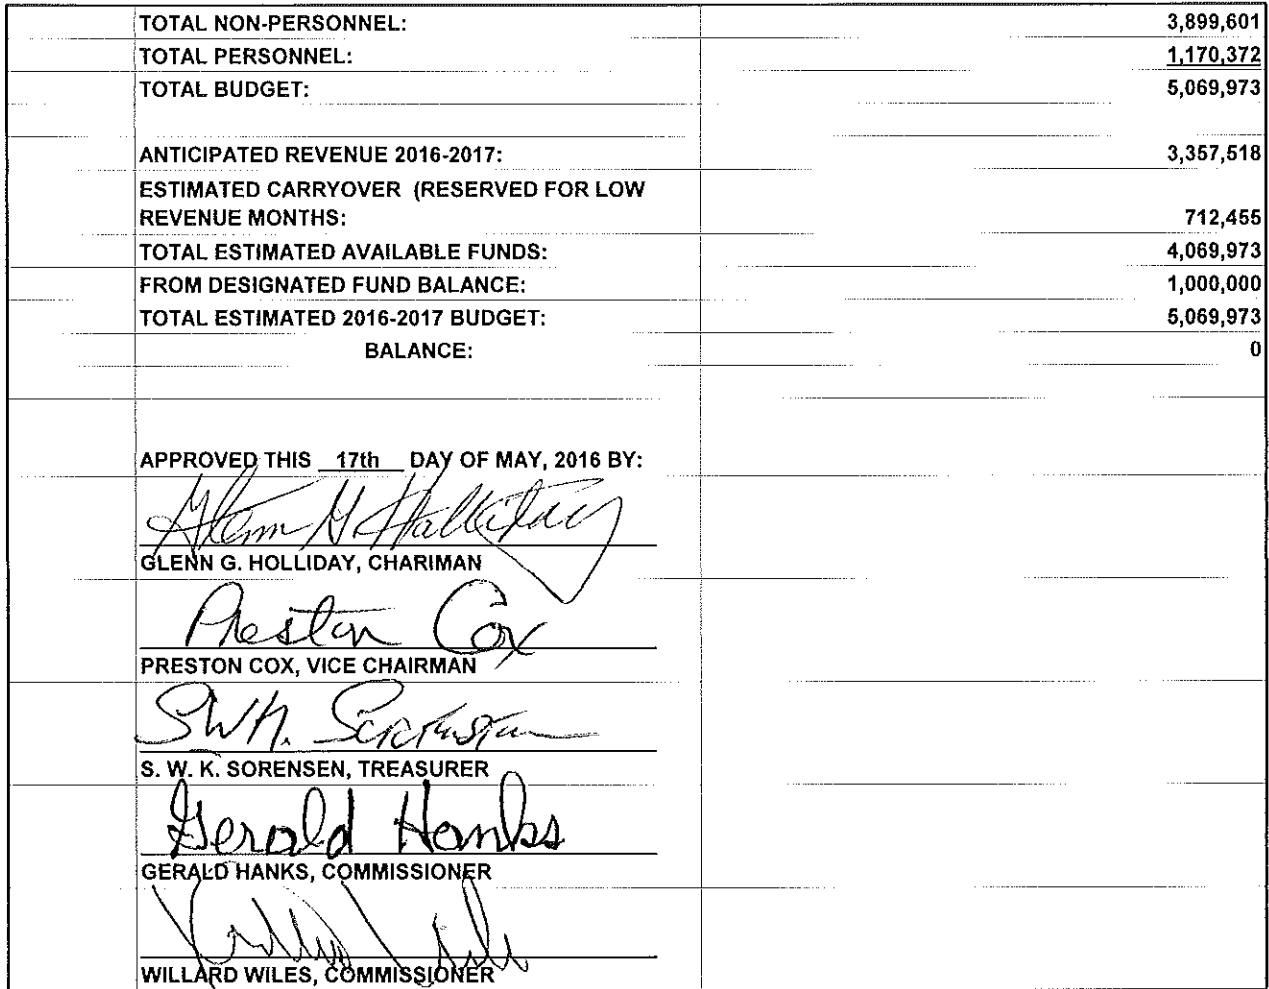 TOTAL NON-PERSONNEL: 3,899,601
TOTAL PERSONNEL: 1,170,372
TOTAL BUDGET: 5,069,973
ANTICIPATED REVENUE 2016-2017: 3,357,518
ESTIMATED CARRYOVER (RESERVED FOR LOW
REVENUE MONTHS: 712,455
TOTAL ESTIMATED AVAILABLE FUNDS: 4,069,973
FROM DESIGNATED FUND BALANCE: 1,000,000
TOTAL ESTIMATED 2016-2017 BUDGET: 5,069,973
BALANCE: 0
APPROVED THIS 17th DAY OF MAY, 2016 BY:
Glenn G Holliday
GLENN G. HOLLIDAY, CHARIMAN
Preston Cox
PRESTON COX, VICE CHAIRMAN
SWK. Sorensen
S. W. K. SORENSEN, TREASURER
Gerald Hanks
GERALD HANKS, COMMISSIONER
WILLARD WILES, COMMISSIONER